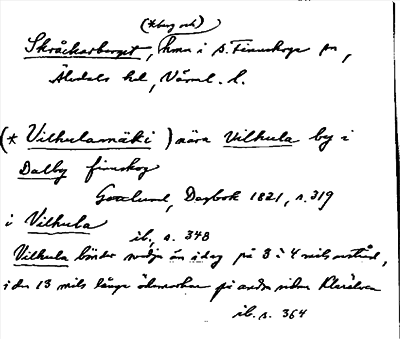 (*berg och)
Skråckarberget, hmn i S. Finnskoga sn,
Älvdals hd, Värml. l.
(* Vilhulamäki) nära Vilhula by i
Dalby finskog
Gottlund, Dagbok 1821, s. 319
i Vilhula
ib., s. 348
Vilhula bönder nödja än idag på 3 à 4 mils avstånd,
i den 13 mils långa ödemarken på andra sidan Klarälven
ib. s. 364